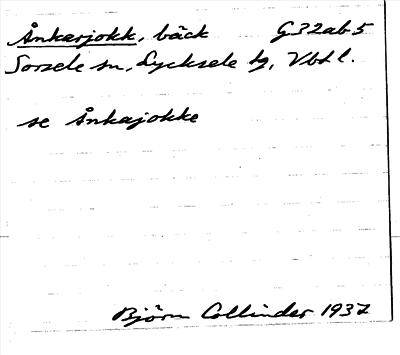 Ånkarjokk, bäck G32ab5
Sorsele sn, Lycksele tg, Vbtl.
se Ånkajokke
Björn Collinder 1937